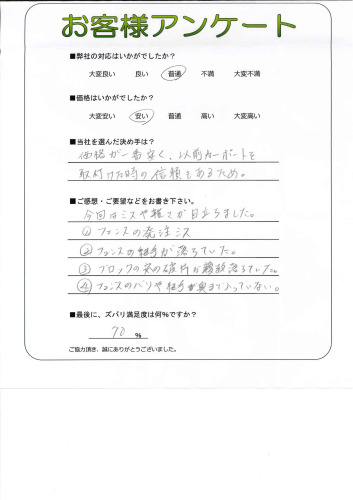 お客様アンケート
■弊社の対応はいかがでしたか？
大変良い 良い 普通 不満 大変不満
■価格はいかがでしたか？
大変安い 安い 普通 高い 大変高い
■当社を選んだ決め手は？
価格が一番安く、以前カーポートを
取付けた時の信頼もあるため。
■ご感想・ご要望などをお書き下さい。
今回はミスや雑さが目立ちました。
① フェンスの発注ミス
② フェンスの継手が落ちていた。
③ ブロックの 破片が 落ちていた。
④ フェンスのバリや 継手が奥まで入っていない。
■最後に、ズバリ満足度は何％ですか？
70 %
ご協力頂き、誠にありがとうございました。